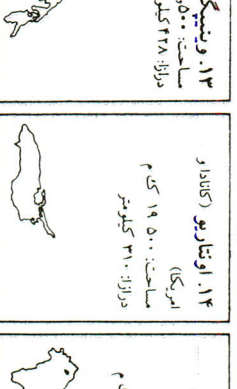 ۱۳. وینیپگ
مساحت: ۵۰۰
درازا: ۴۲۸ کیلو
۱۴. اونتاریو (کانادا و
امریکا)
مساحت: ۵۰۰ ۱۹ ک م
درازا: ۳۱۰ کیلومتر
م